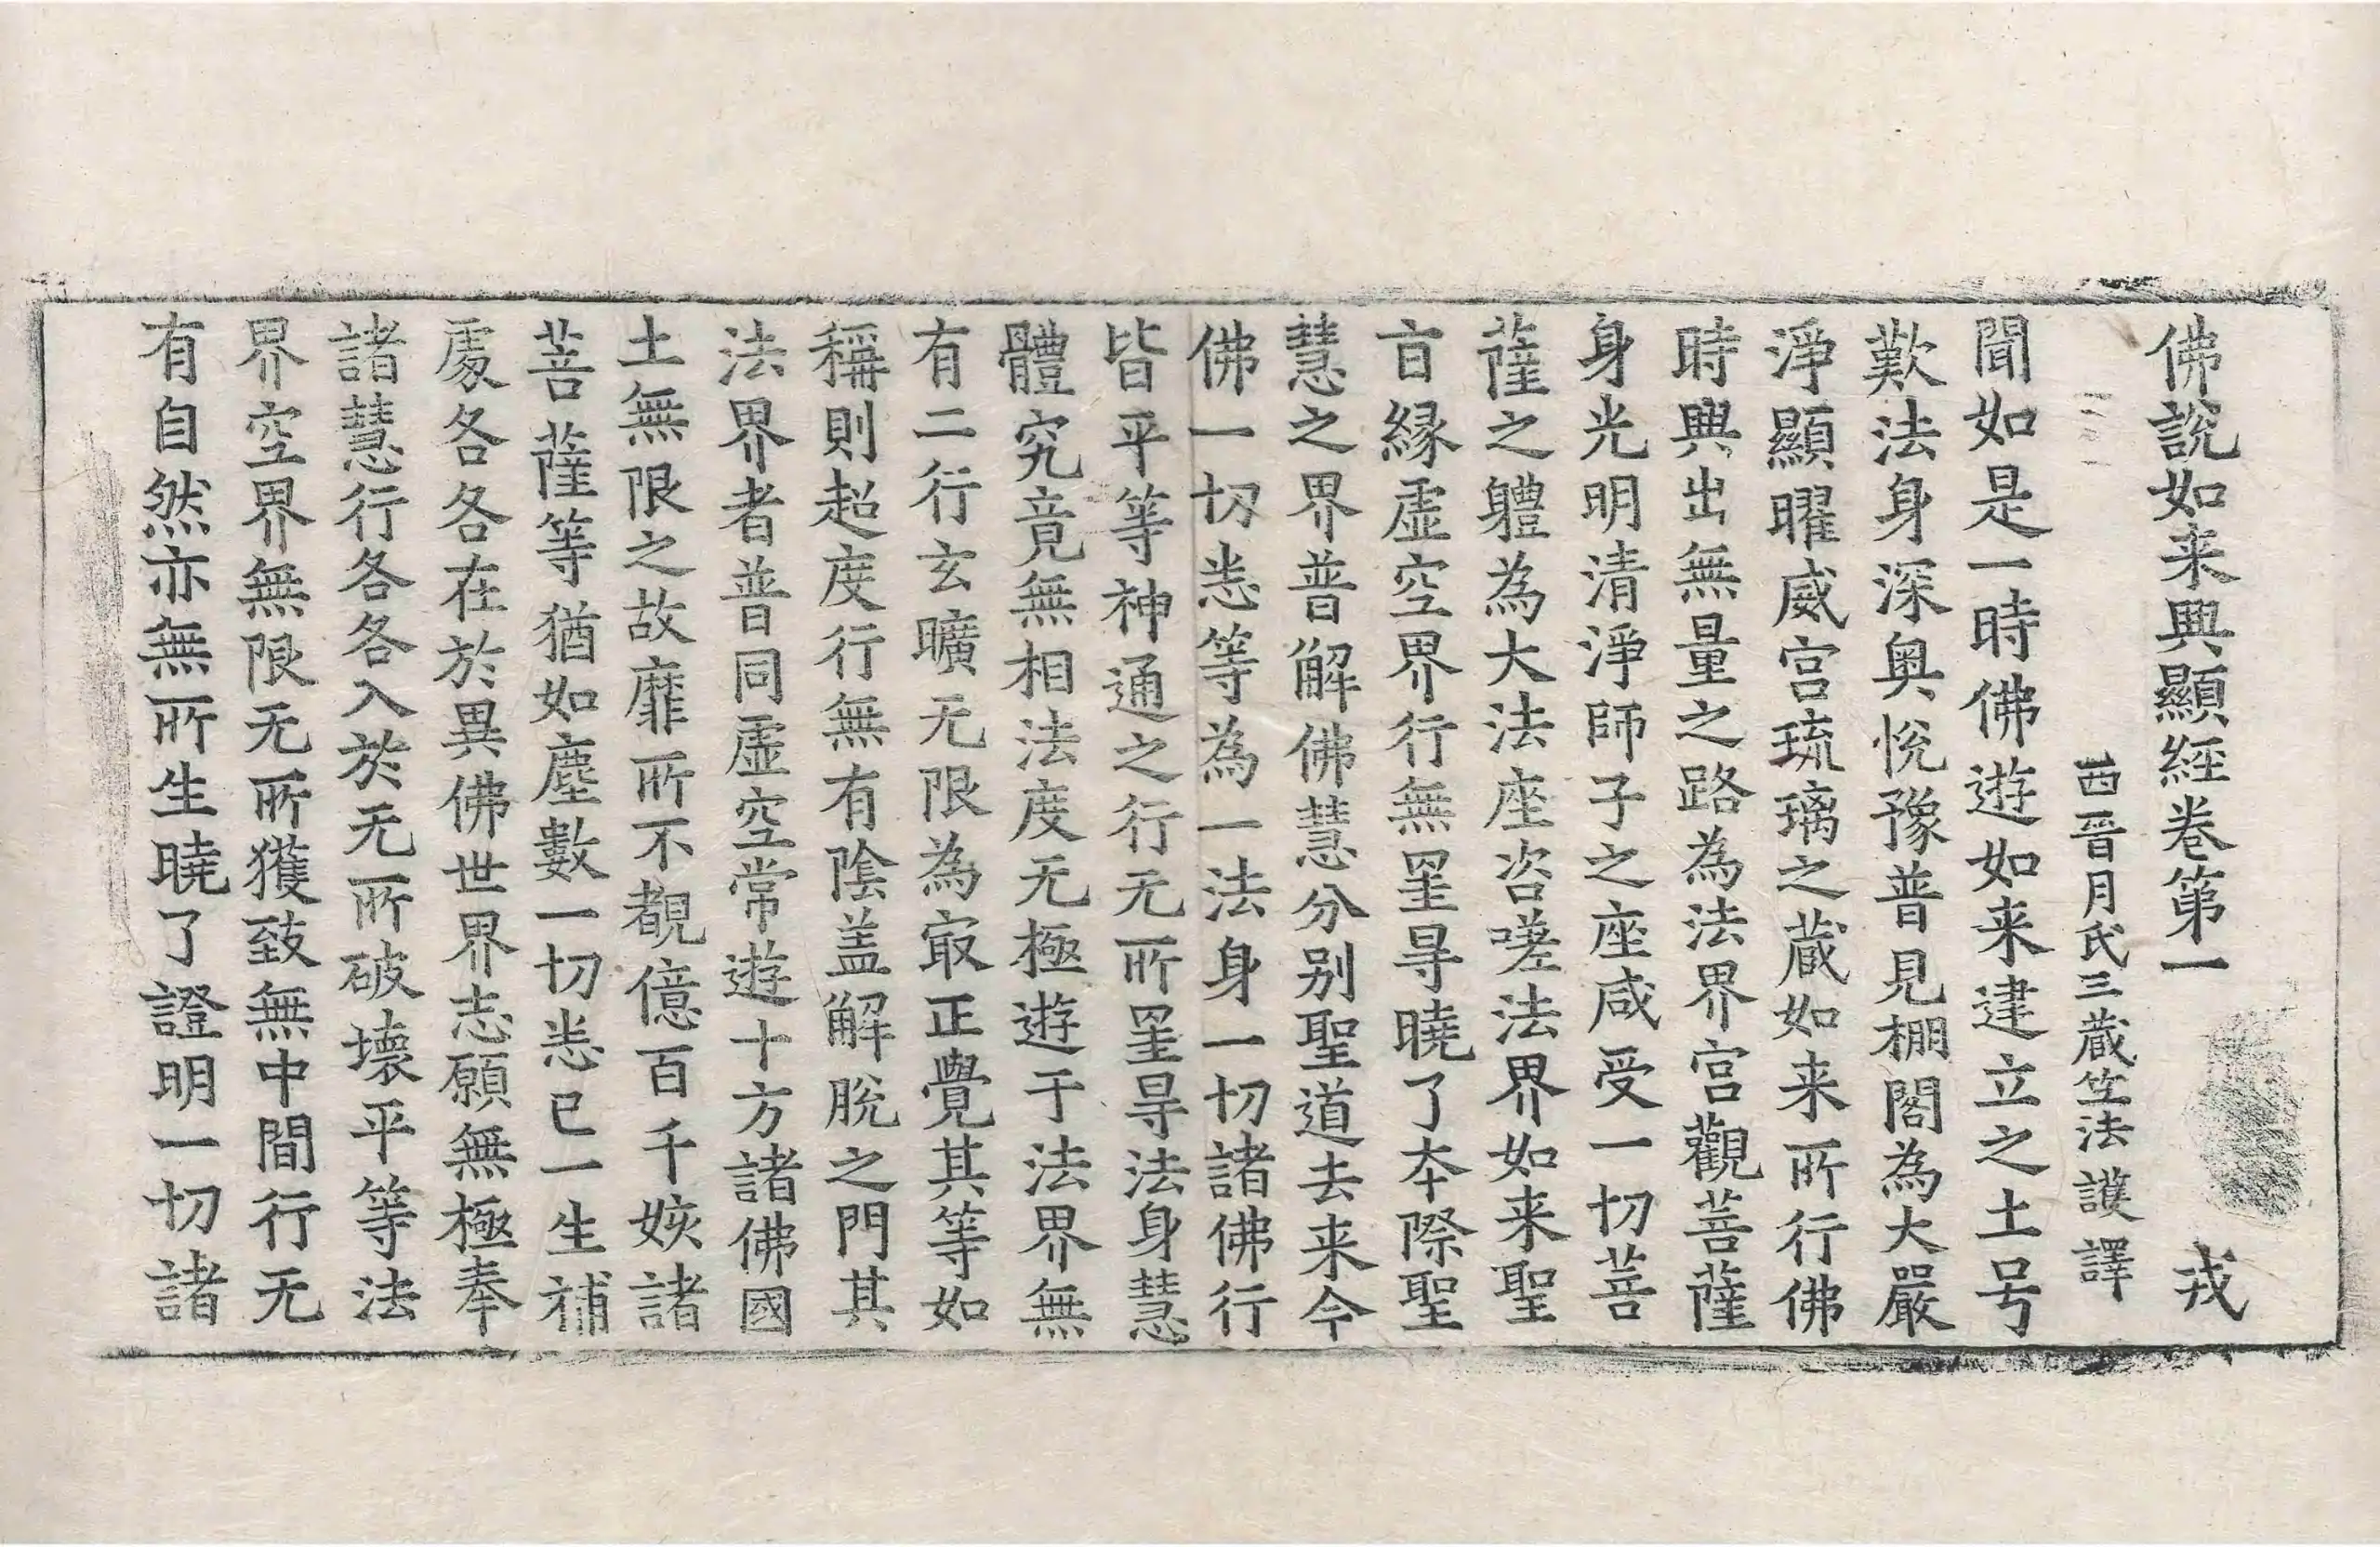 佛說如来興顯經卷第一 戎
西晉月氏三藏竺法護譯
聞如是一時佛遊如来建立之土号
歎法身深奥恱豫普見棚閣為大嚴
淨顯曜威宫琉璃之蔵如来所行佛
時興出無量之路為法界宫觀菩薩
身光明清淨師子之座咸受一切菩
薩之軆為大法座咨嗟法界如来聖
㫖縁虚空界行無罣㝵曉了夲際聖
慧之界普解佛慧分别聖道去来今
佛一切悉等為一法身一切諸佛行
皆平等神通之行无所罣㝵法身慧
體究竟無相法度无極遊于法界無
有二行玄曠无限為㝡正覺其等如
稱則超度行無有陰盖解脫之門其
法界者普同虚空常遊十方諸佛國
土無限之故靡所不覩億百千姟諸
菩薩等猶如塵數一切悉已一生補
處各各在於異佛世界志願無極奉
諸慧行各各入於无所破壞平等法
界空界無限无所獲致無中間行无
有自然亦無所生曉了證明一切諸